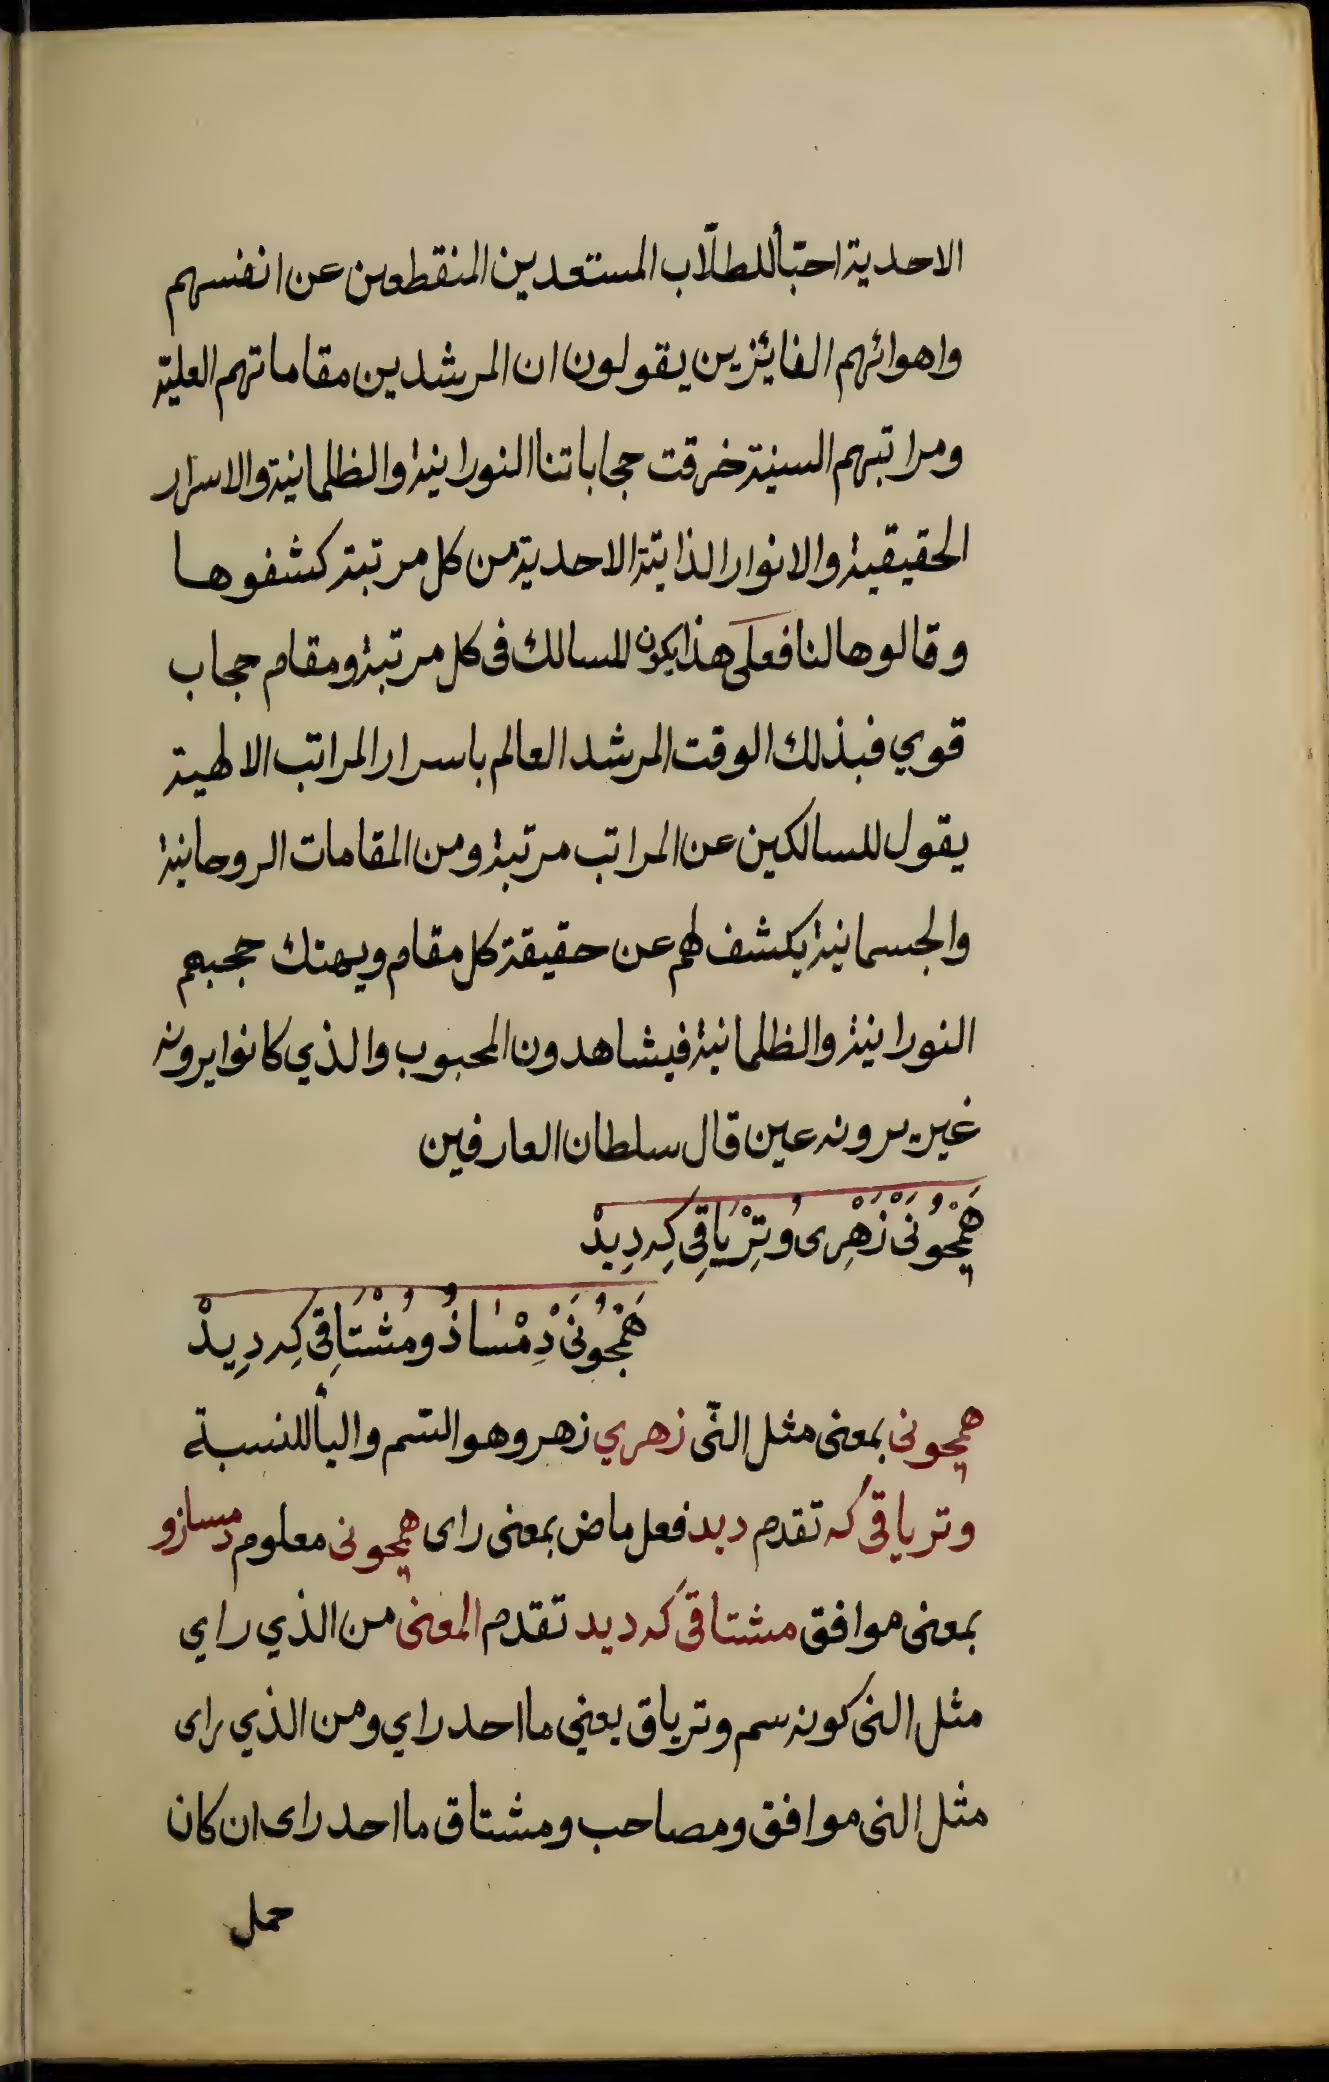 الاحدية احبّأ للطلّاب المستعدين المنقطعين عن انفسهم
واهوائهم الفائزين يقولون ان المرشدين مقاماتهم العليّة
ومراتبهم السنية خرقت حجاباتنا النورانية والظلمانية والاسرار
الحقيقية والانوار الذاتية الاحدية من كل مرتبة كشفوها
وقالوها لنا فعلى هذا يكون للسالك فى كل مرتبة ومقام حجاب
قوي فبذلك الوقت المرشد العالم باسرار المراتب الالهية
يقول للسالكين عن المراتب مرتبة ومن المقامات الروحانية
والجسمانية يكشف لهم عن حقيقة كل مقام ويهتك حجبهم
النورانية والظلمانية فيشاهدون المحبوب والذي كانوا يرونه
غير يرونه عين قال سلطان العارفين
هَمْچُونَىْ زَهْرِى وُ تِرْيَاقِى كِه دِيدْ
هَمْچُونَىْ دِمْسَازُ و مُشْتَاقِى كِه دِيدْ
همچونى بمعنى مثل النّى زهري زهر وهو السّم واليأ للنسبة
وترياقى كه تقدم ديد فعل ماض بمعنى راى همچونى معلوم دمسازو
بمعنى موافق مشتاقى كه ديد تقدم المعنى من الذي راي
مثل النى كونه سم وترياق يعني ما احد راي ومن الذي راى
مثل النى موافق ومصاحب ومشتاق ما احد راى ان كان
حمل